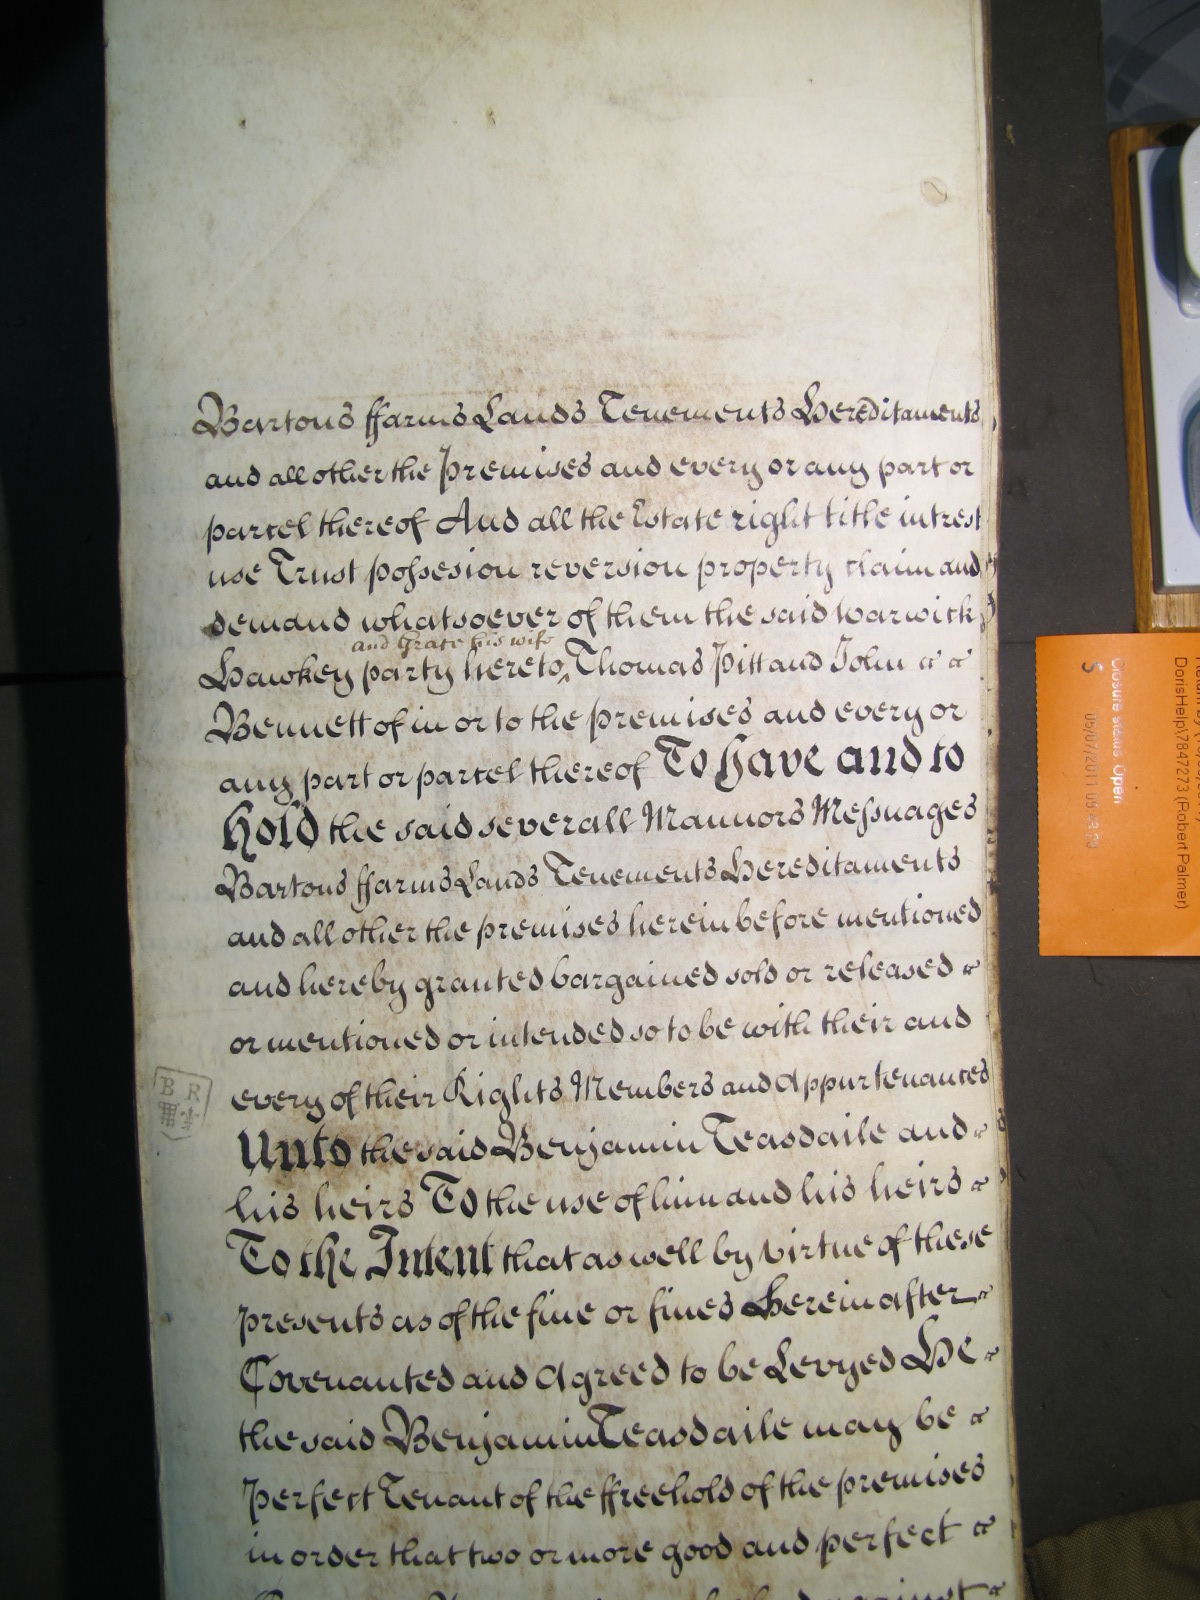 Bartons ffarms Lands Tenements Hereditaments
and all other the Premises and every or any part or
parcel thereof And all the Estate right title intrest
use Trust possesion reversion property claim and
demand whatsoever of them the said Warwick
and Grace his wife
Hawkey party hereto Thomas Pitt and John
Bennett of in or to the premises and every or
any part or parcel thereof To have and to
hold the said severall Mannors Messuages
Bartons ffarms Lands Tenements Hereditaments
and all other the premises herein before mentioned
and hereby granted bargained sold or released
or mentioned or intended so to be with their and
every of their Rights Members and Appurtenances
Unto the said Benjamin Teasdaile and
his heirs To the use of him and his heirs
To the Intent that as well by virtue of these
presents as of the fine or fines Herein after
Covenanted and Agreed to be Levyed He
the said Benjamin Teasdaile may be
Perfect Tenant of the ffreehold of the premises
in order that two or more good and perfect
against
B R
DorisHelp\7847273 (Robert Palmer)
Closure status Open
S